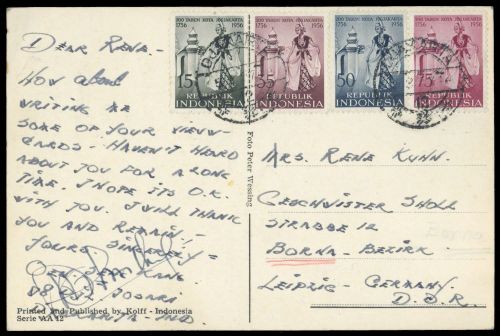 DEAR RENE.-
HOW about
WRITING ME
SOME OF YOUR VIEW-
CARDS - HAVEN'T HEARD
ABOUT YOU FOR A LONG
TIME. I HOPE ITS O.K.
WITH YOU. I WILL THANK
YOU AND REMAIN:-
YOURS SINCERELY:-
Printed and Published by Kolff - Indonesia
Serie AA 12
Foto Peter Wessing
200 TAHUN KOTA JOGJAKARTA
1756 1956
15
REPUBLIK
INDONESIA
200 TAHUN KOTA JOGJAKARTA
1756 1956
35
REPUBLIK
INDONESIA
200 TAHUN KOTA JOGJAKARTA
1756 1956
50
REPUBLIK
INDONESIA
200 TAHUN KOTA JOGJAKARTA
1756 1956
75
REPUBLIK
INDONESIA
MRS. RENE KUHN.
GESCHWISTER SHOLL
STRASSE 12
BORNA - BEZIRK
LEIPZIG - GERMANY.
D.D.R.